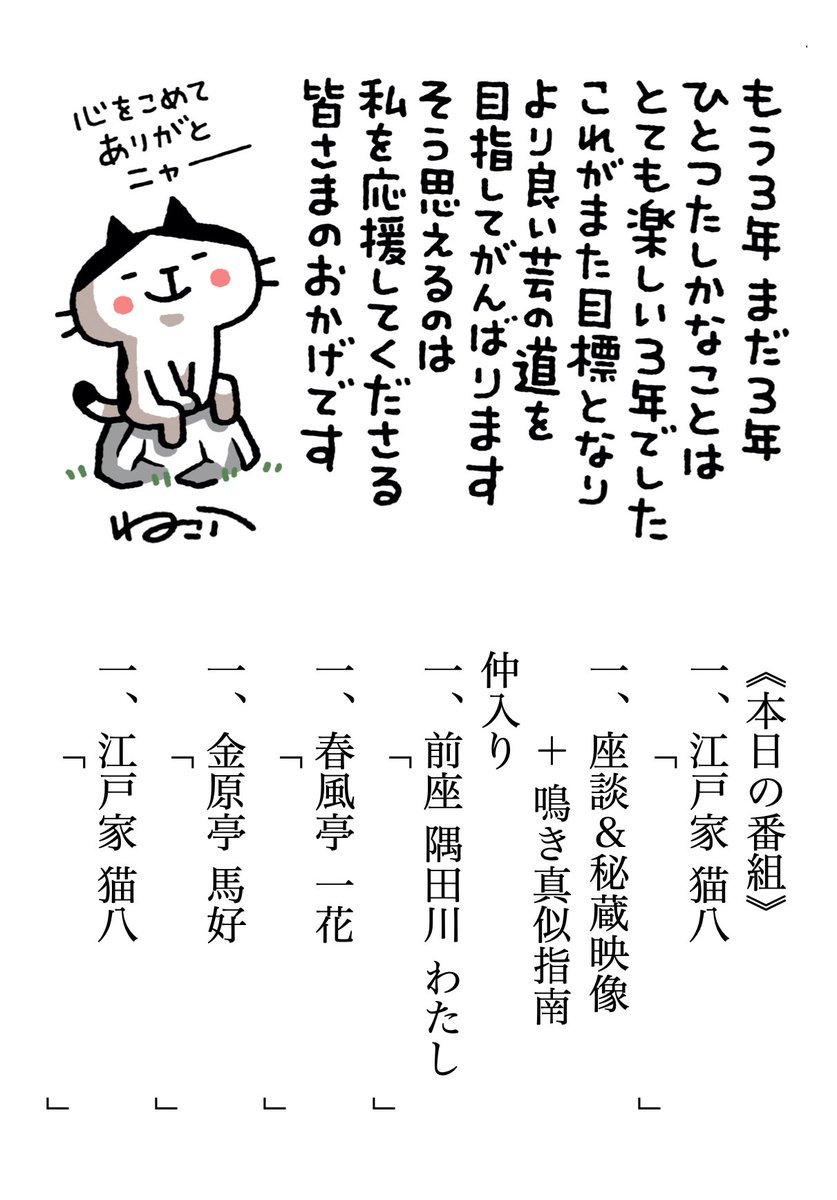 もう3年 まだ3年
ひとつたしかなことは
とても楽しい3年でした
これがまた目標となり
より良い芸の道を
目指してがんばります
そう思えるのは
私を応援してくださる
皆さまのおかげです
心をこめて
ありがと
ニャー
ねこハ
《本日の番組》
一、江戸家 猫八
「 」
一、座談&秘蔵映像
＋ 鳴き真似指南
仲入り
一、前座 隅田川 わたし
「 」
一、春風亭 一花
「 」
一、金原亭 馬好
「 」
一、江戸家 猫八
「 」